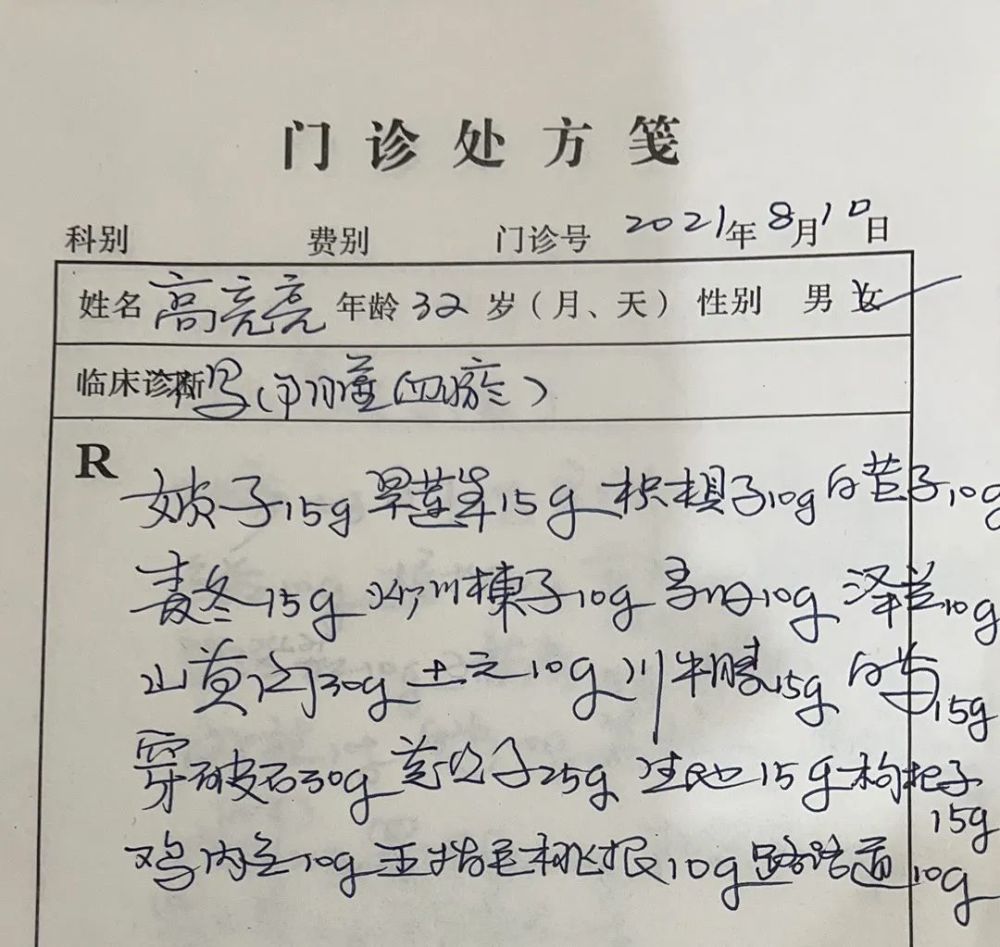 门诊处方笺
科别 费别 门诊号 2021年8月10日
姓名 高亮亮 年龄 32 岁（月、天） 性别 男 女
临床诊断
R
子15g 旱莲草15g 枳椇子10g 白芥子10g
麦冬15g 川楝子10g 10g 泽兰10g
山黄 30g 土元10g 川牛膝15g 白芍15g
穿破石30g 子25g 生地15g 枸杞子15g
鸡内金10g 桃根10g 路路通10g